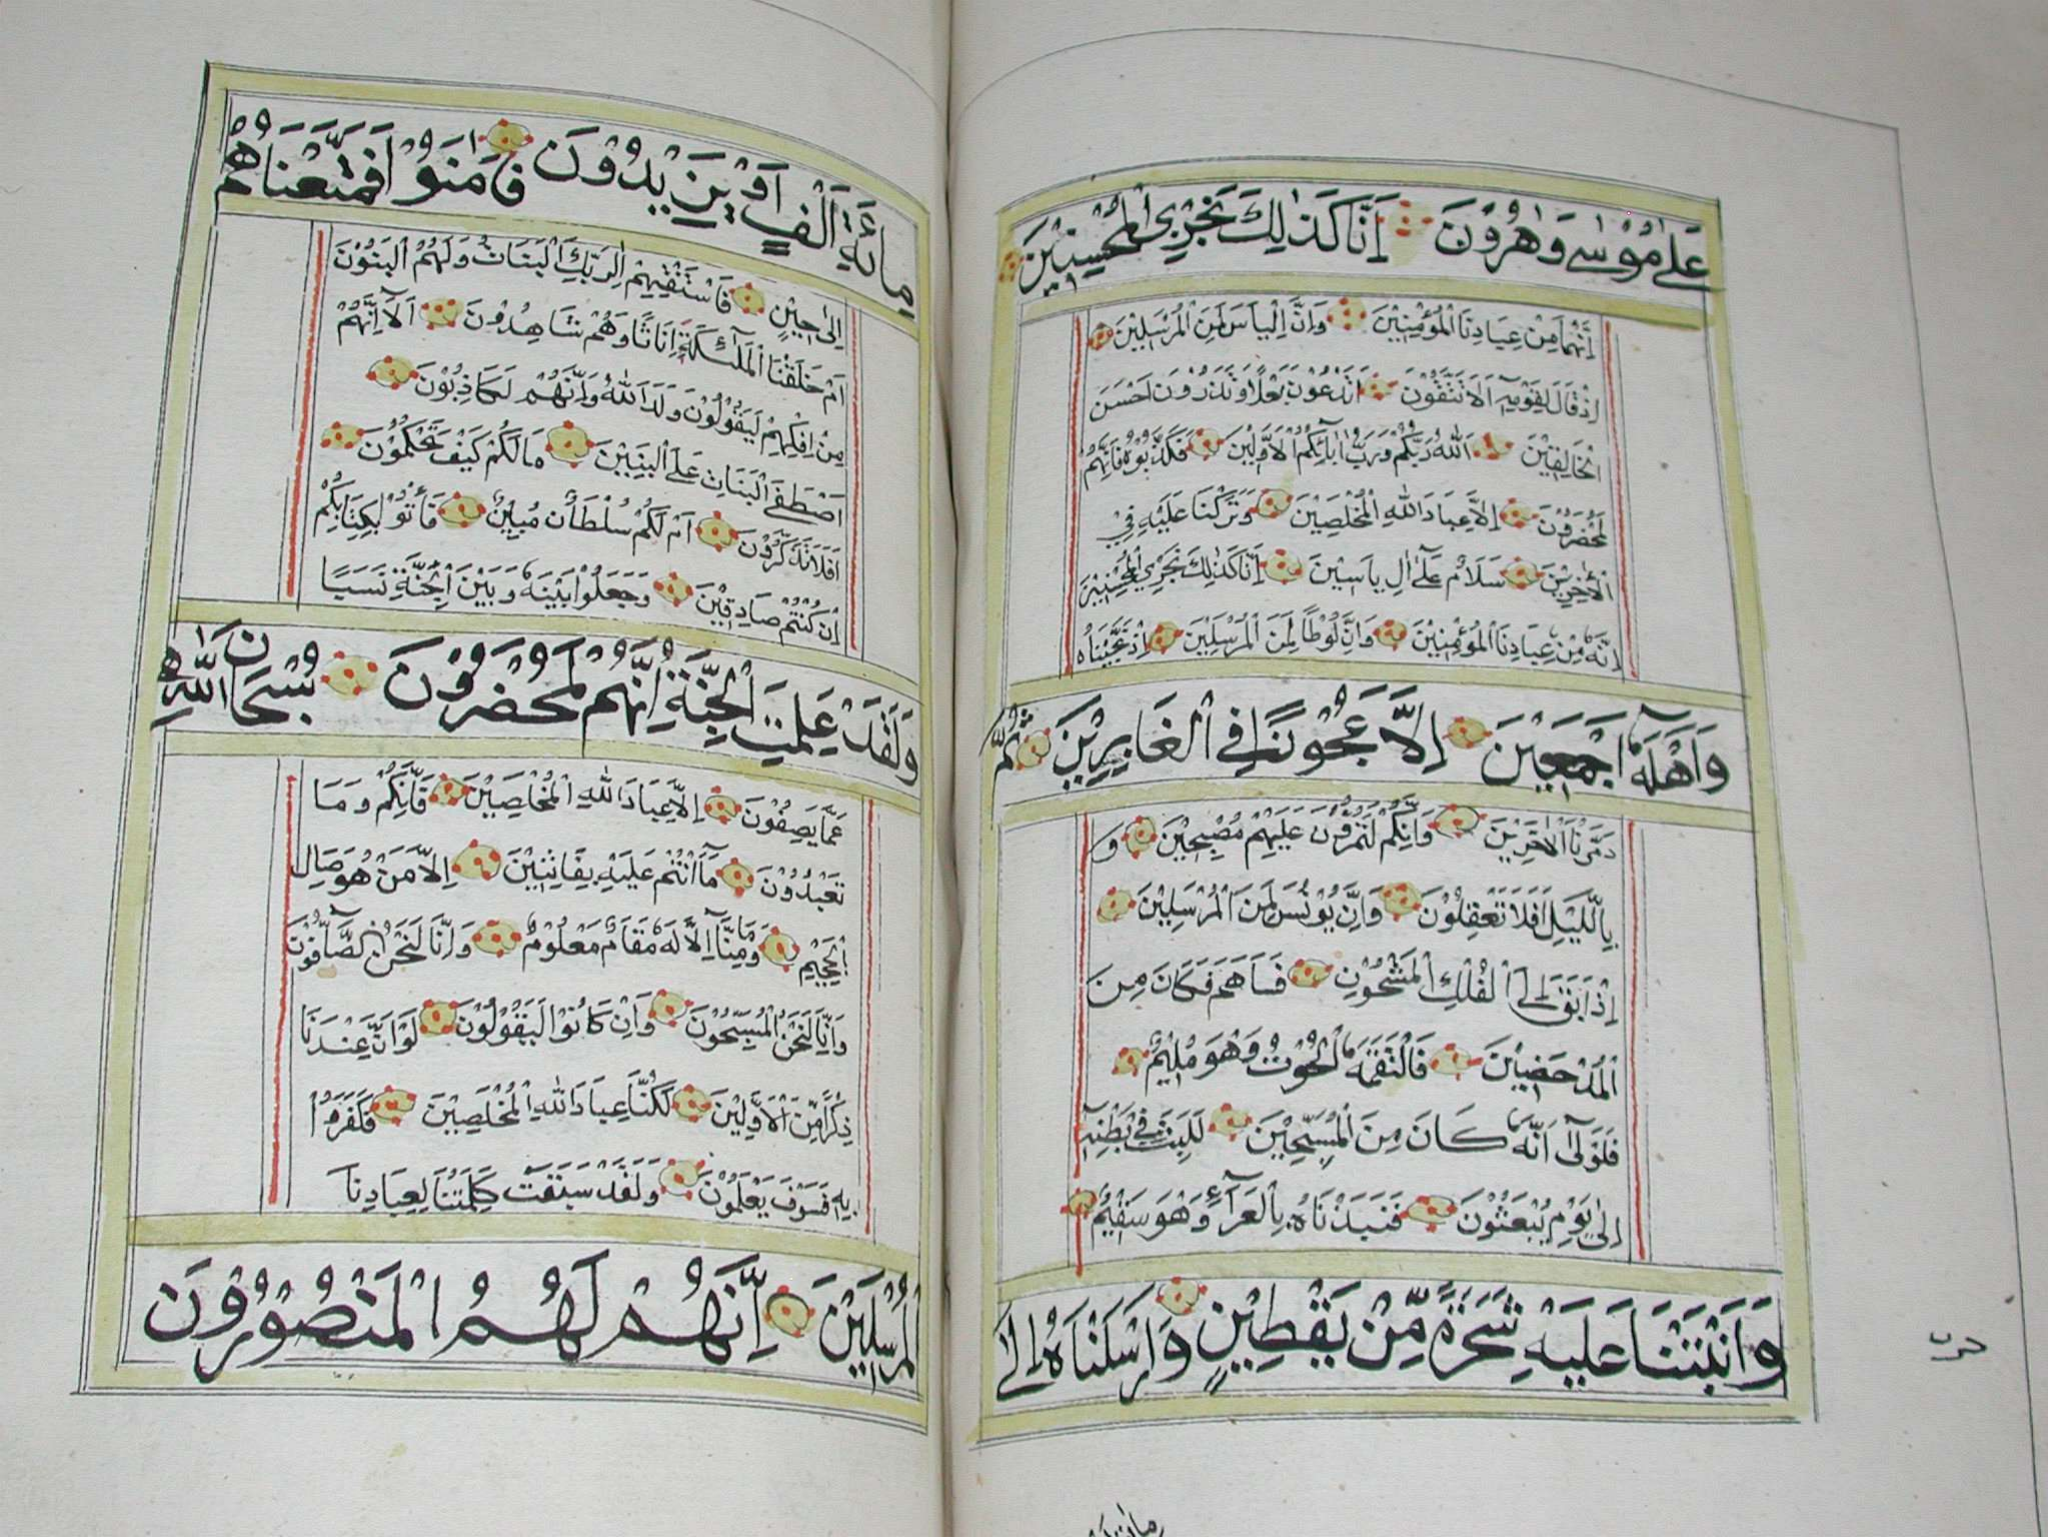 عَلٰى مُوْسٰى وَهٰرُوْنَ اِنَّا كَذٰلِكَ نَجْزِي الْمُحْسِنِيْنَ
اِنَّهُمَا مِنْ عِبَادِنَا الْمُؤْمِنِيْنَ وَاِنَّ اِلْيَاسَ لَمِنَ الْمُرْسَلِيْنَ
اِذْ قَالَ لِقَوْمِهٖٓ اَلَا تَتَّقُوْنَ اَتَدْعُوْنَ بَعْلًا وَتَذَرُوْنَ اَحْسَنَ
الْخَالِقِيْنَ اَللّٰهُ رَبُّكُمْ وَرَبُّ اٰبَآئِكُمُ الْاَوَّلِيْنَ فَكَذَّبُوْهُ فَاِنَّهُمْ
لَمُحْضَرُوْنَ اِلَّا عِبَادَ اللّٰهِ الْمُخْلَصِيْنَ وَتَرَكْنَا عَلَيْهِ فِي
الْاٰخِرِيْنَ سَلَامٌ عَلٰٓى اِلْ يَاسِيْنَ اِنَّا كَذٰلِكَ نَجْزِي الْمُحْسِنِيْنَ
اِنَّهٗ مِنْ عِبَادِنَا الْمُؤْمِنِيْنَ وَاِنَّ لُوْطًا لَمِنَ الْمُرْسَلِيْنَ اِذْ نَجَّيْنَاهُ
وَاَهْلَهٗٓ اَجْمَعِيْنَ اِلَّا عَجُوْزًا فِي الْغَابِرِيْنَ ثُمَّ
دَمَّرْنَا الْاٰخَرِيْنَ وَاِنَّكُمْ لَتَمُرُّوْنَ عَلَيْهِمْ مُصْبِحِيْنَ وَ
بِالَّيْلِ اَفَلَا تَعْقِلُوْنَ وَاِنَّ يُوْنُسَ لَمِنَ الْمُرْسَلِيْنَ
اِذْ اَبَقَ اِلَى الْفُلْكِ الْمَشْحُوْنِ فَسَاهَمَ فَكَانَ مِنَ
الْمُدْحَضِيْنَ فَالْتَقَمَهُ الْحُوْتُ وَهُوَ مُلِيْمٌ
فَلَوْلَآ اَنَّهٗ كَانَ مِنَ الْمُسَبِّحِيْنَ لَلَبِثَ فِيْ بَطْنِهٖٓ
اِلٰى يَوْمِ يُبْعَثُوْنَ فَنَبَذْنَاهُ بِالْعَرَآءِ وَهُوَ سَقِيْمٌ
وَاَنْبَتْنَا عَلَيْهِ شَجَرَةً مِّنْ يَقْطِيْنٍ وَاَرْسَلْنَاهُ اِلٰى
مِائَةِ اَلْفٍ اَوْ يَزِيْدُوْنَ فَاٰمَنُوْا فَمَتَّعْنَاهُمْ
اِلٰى حِيْنٍ فَاسْتَفْتِهِمْ اَلِرَبِّكَ الْبَنَاتُ وَلَهُمُ الْبَنُوْنَ
اَمْ خَلَقْنَا الْمَلٰٓئِكَةَ اِنَاثًا وَهُمْ شَاهِدُوْنَ اَلَآ اِنَّهُمْ
مِنْ اِفْكِهِمْ لَيَقُوْلُوْنَ وَلَدَ اللّٰهُ وَاِنَّهُمْ لَكَاذِبُوْنَ
اَصْطَفَى الْبَنَاتِ عَلَى الْبَنِيْنَ مَالَكُمْ كَيْفَ تَحْكُمُوْنَ
اَفَلَا تَذَكَّرُوْنَ اَمْ لَكُمْ سُلْطَانٌ مُبِيْنٌ فَأْتُوْا بِكِتَابِكُمْ
اِنْ كُنْتُمْ صَادِقِيْنَ وَجَعَلُوْا بَيْنَهٗ وَبَيْنَ الْجِنَّةِ نَسَبًا
وَلَقَدْ عَلِمَتِ الْجِنَّةُ اِنَّهُمْ لَمُحْضَرُوْنَ سُبْحَانَ اللّٰهِ
عَمَّا يَصِفُوْنَ اِلَّا عِبَادَ اللّٰهِ الْمُخْلَصِيْنَ فَاِنَّكُمْ وَمَا
تَعْبُدُوْنَ مَآ اَنْتُمْ عَلَيْهِ بِفَاتِنِيْنَ اِلَّا مَنْ هُوَ صَالِ
الْجَحِيْمِ وَمَا مِنَّآ اِلَّا لَهٗ مَقَامٌ مَعْلُوْمٌ وَاِنَّا لَنَحْنُ الصَّآفُّوْنَ
وَاِنَّا لَنَحْنُ الْمُسَبِّحُوْنَ وَاِنْ كَانُوْا لَيَقُوْلُوْنَ لَوْ اَنَّ عِنْدَنَا
ذِكْرًا مِّنَ الْاَوَّلِيْنَ لَكُنَّا عِبَادَ اللّٰهِ الْمُخْلَصِيْنَ فَكَفَرُوْا
بِهٖ فَسَوْفَ يَعْلَمُوْنَ وَلَقَدْ سَبَقَتْ كَلِمَتُنَا لِعِبَادِنَا
الْمُرْسَلِيْنَ اِنَّهُمْ لَهُمُ الْمَنْصُوْرُوْنَ